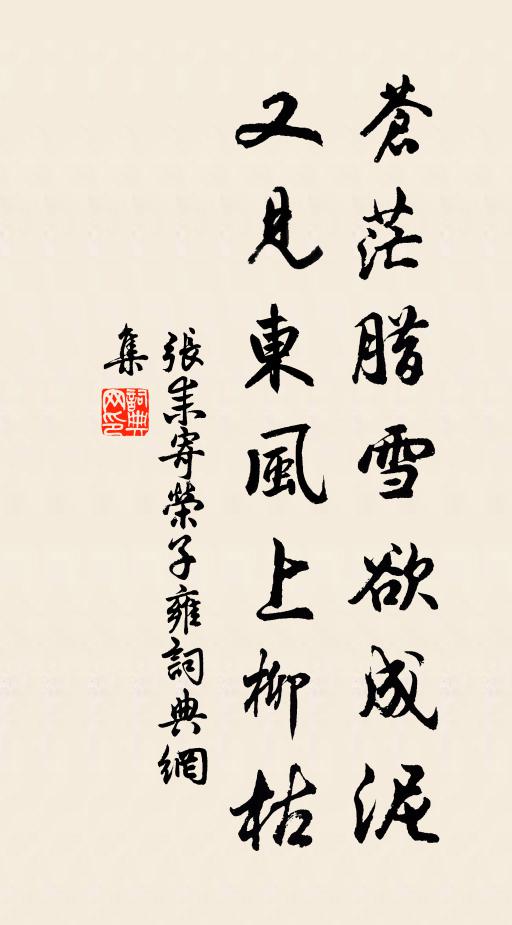 蒼茫腊雪欲成泥
又見東風上柳枯
張耒寄榮子雍詞典網
集
詞典
网印